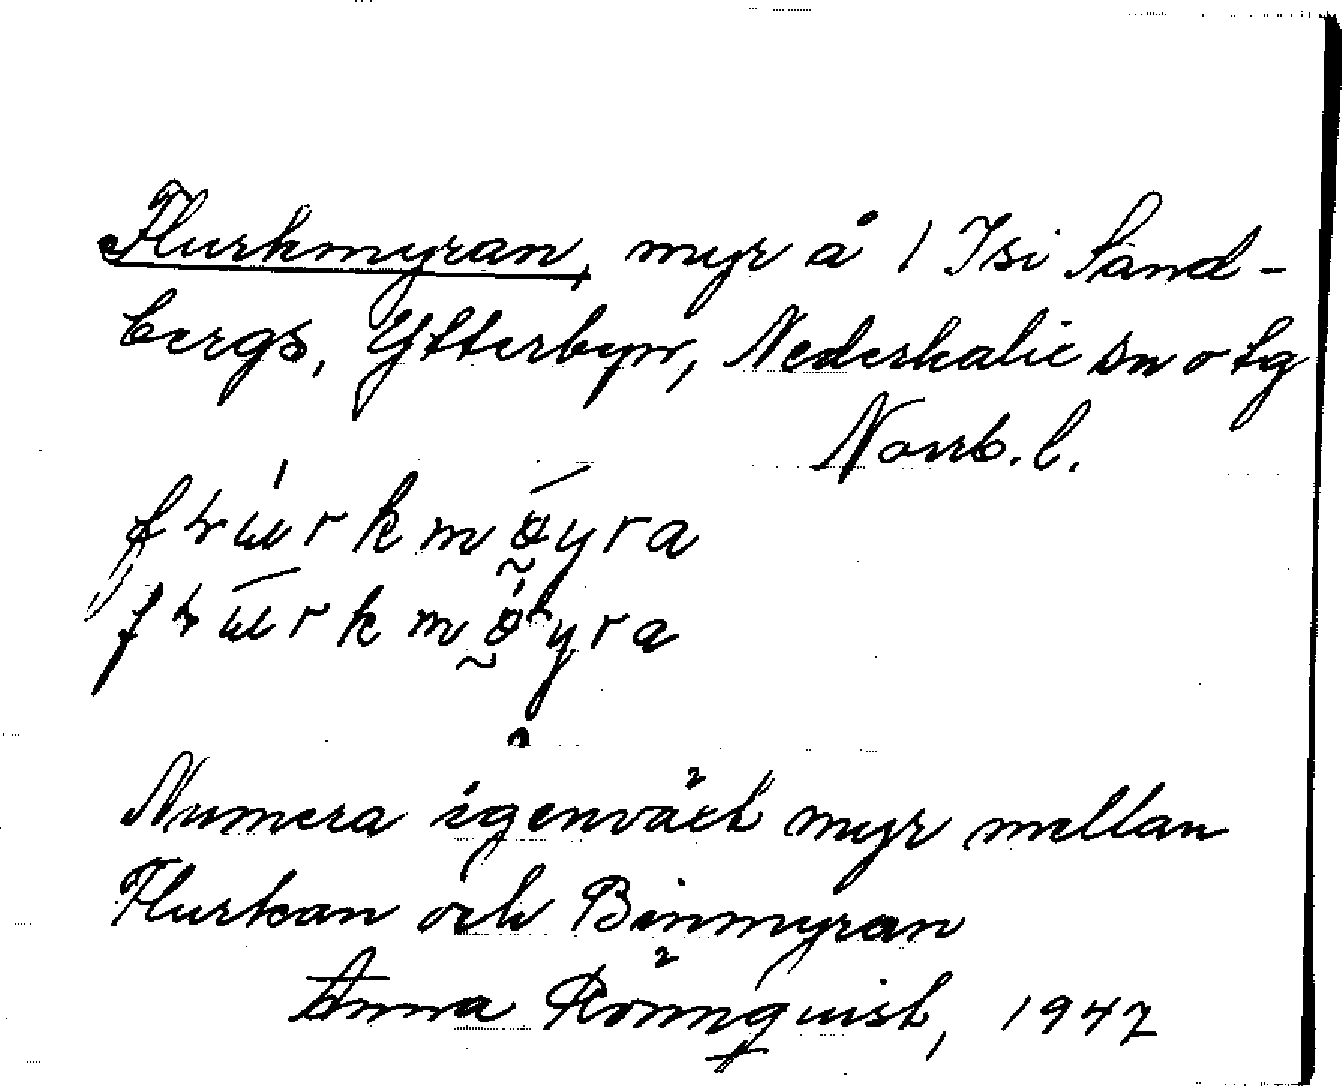 Flurkmyran, myr å 1 Isi Sand-
bergs, Ytterbyn, Nederkalix sn o tg
Norrb. l.
Numera igenväxt myr mellan
Flurkan och Binmyran
Anna Rönnquist, 1947